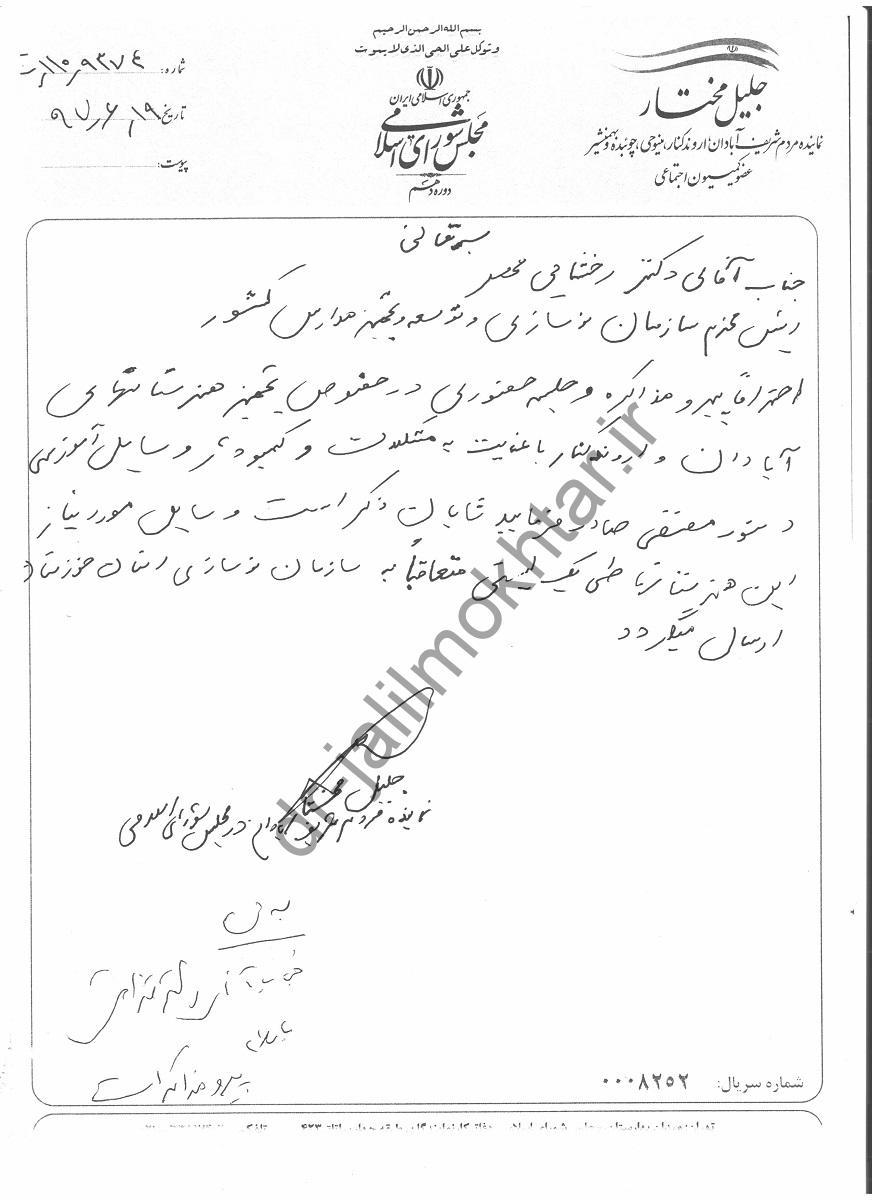 بسم الله الرحمن الرحیم
و توکل علی الحی الذی لا یموت
جمهوری اسلامی ایران
مجلس شورای اسلامی
دوره دهم
جلیل مختار
نماینده مردم شریف آبادان، اروندکنار، مینوحی، چوئبده و بهمنشیر
عضو کمیسیون اجتماعی
شماره: ۱۱۰٫۹۳۷۴
تاریخ: ۹۷٫۶٫۱۹
پیوست:
بسمه تعالی
جناب آقای دکتر رخشانی مهر
رئیس محترم سازمان نوسازی و توسعه و تجهیز مدارس کشور
احتراماً پیرو مذاکره و جلسه حضوری در خصوص تجهیز هنرستانهای
آبادان و اروندکنار با عنایت به مشکلات و کمبود وسایل آموزشی
دستور مقتضی صادر فرمایید شایان ذکر است وسایل مورد نیاز
این هنرستانها طی یک لیستی متعاقباً به سازمان نوسازی استان خوزستان
ارسال میگردد
جلیل مختار
نماینده مردم شریف آبادان در مجلس شورای اسلامی
با سلام
پیرو مذاکرات
شماره سریال: ۰۰۰۸۲۵۲
dr-jalilmokhtar.ir